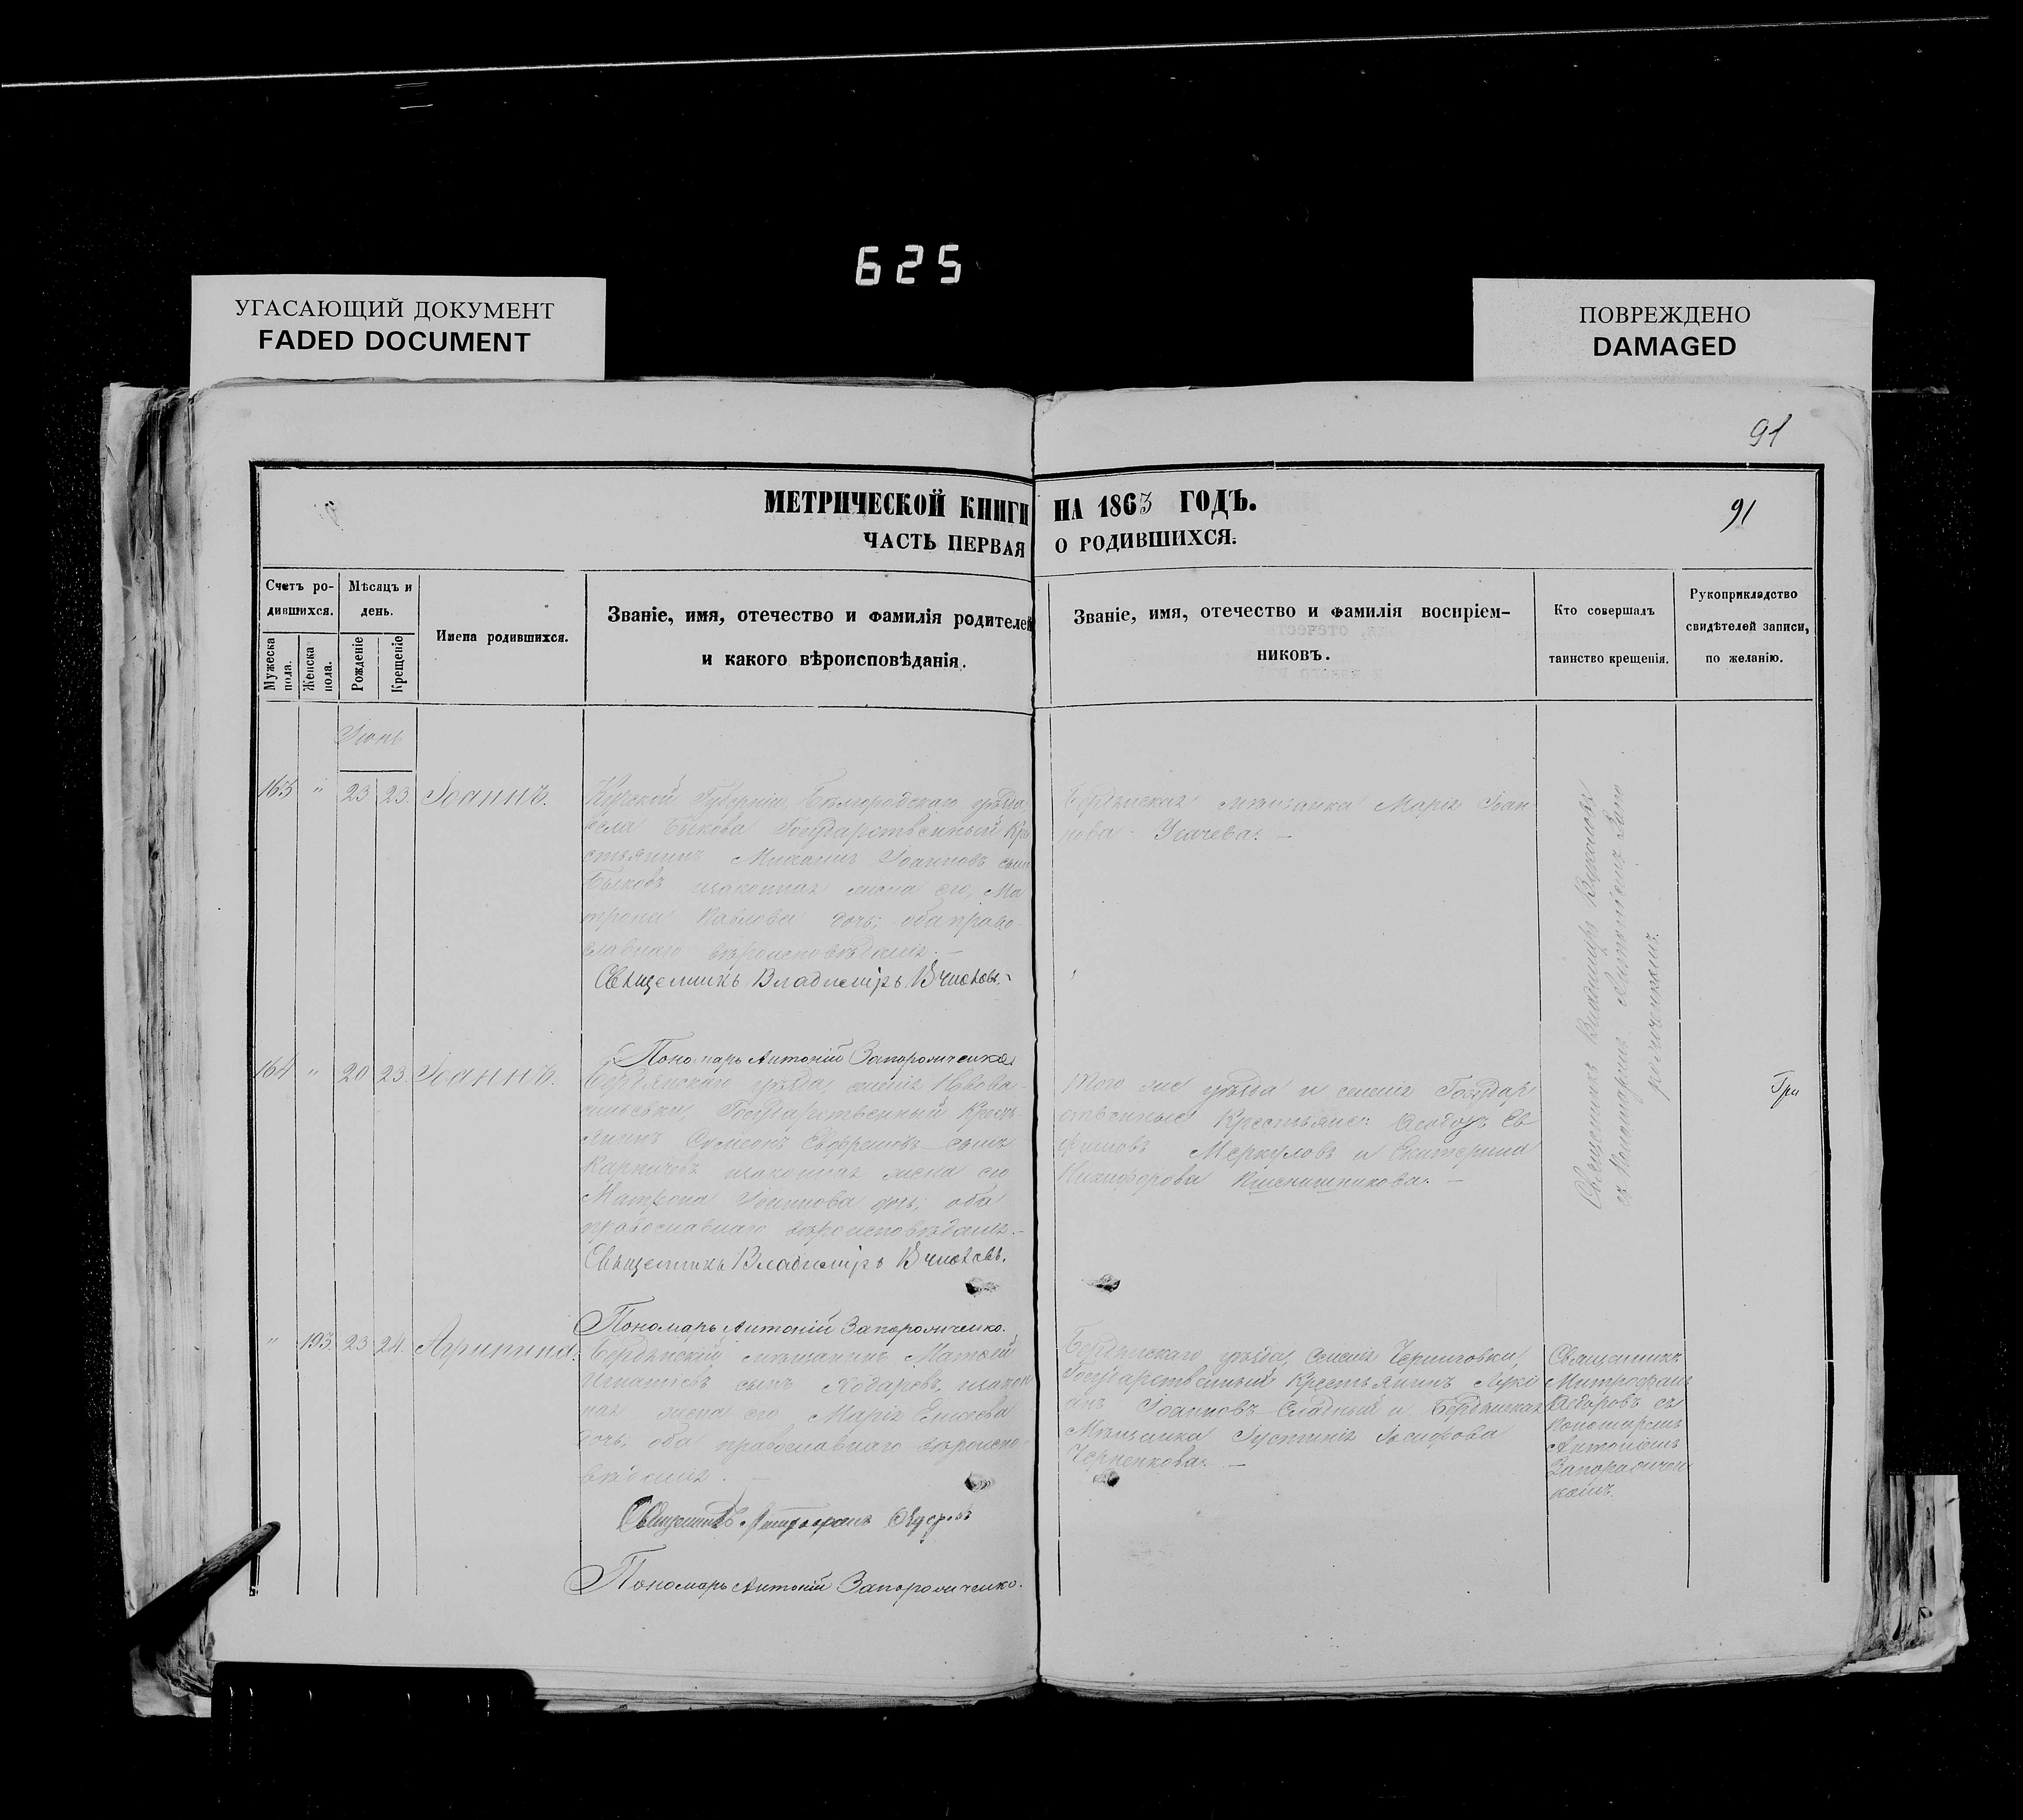 625
УГАСАЮЩИЙ ДОКУМЕНТ
FADED DOCUMENT
ПОВРЕЖДЕНО
DAMAGED
91
МЕТРИЧЕСКОЙ КНИГИ НА 1863 ГОДЪ.
91
ЧАСТЬ ПЕРВАЯ О РОДИВШИХСЯ.
Счетъ ро-
дившихся.
Мужеска
пола.
Женска
пола.
Мѣсяцъ и
день.
Рожденіе
Крещеніе
Имена родившихся.
Званіе, имя, отечество и фамилія родителей
и какого вѣроисповѣданія.
Званіе, имя, отечество и фамилія воспріем-
никовъ.
Кто совершалъ
таинство крещенія.
Рукоприкладство
свидѣтелей записи,
по желанію.
Іюнь
163 " 23 23. Іоаннъ.
Курской Губерніи, Бѣлгородскаго уѣзда
села Быкова Государственный Кре
стьянинъ Михаилъ Іоанновъ сынъ
Быковъ изаконная жена его, Ма
трона Павлова дочь; оба право
славнаго вѣроисповѣданія. —
Священникъ Владиміръ
Пономарь Антоній Запорожченко.
Бердянская мѣщанка Марія Іоан
нова Усачева. —
164 " 20 23. Іоаннъ.
Бердянскаго уѣзда селенія Нововa
сильевки, Государственный Кресть
янинъ Сумеонъ сынъ
изаконная жена его
Матрона Іоаннова дочь; оба
православнаго вѣроисповѣданія. —
Священникъ Владиміръ
Пономарь Антоній Запорожченко.
Того же уѣзда и селенія Государ
ственные Крестьяне: Ев
фимовъ Меркуловъ и Екатерина
Никифорова Пшенишникова. —
Священникъ Владиміръ
съ Пономаремъ Антоніемъ Запо
рожченкомъ.
Гри
" 193. 23 24. Агрипина.
Бердянскій мѣщанинъ Матѳей
Игнатіевъ сынъ изакон
ная жена его Марія
дочь; оба православнаго вѣроиспо
вѣданія. —
Священникъ Митрофанъ Ѳедоровъ
Пономарь Антоній Запорожченко.
Бердянскаго уѣзда, селенія Черниговки,
Государственный Крестьянинъ Лукі
анъ Іоанновъ Сладный и Бердянская
Мѣщанка Іустинія Іосифова
Черненкова. —
Священникъ
Митрофанъ
Ѳедоровъ съ
Пономаремъ
Антоніемъ
Запорожчен
комъ.